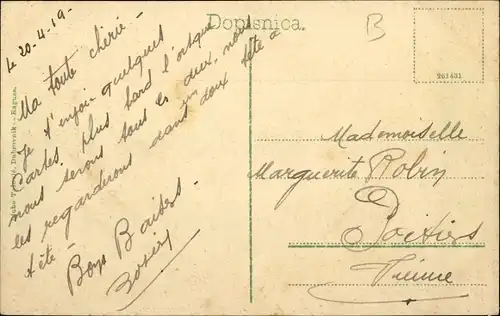 Dopisnica.
B
le 20-4-19-
Ma toute chérie-
Je t'envoie quelques
Cartes, plus tard lorsque
nous serons tous les deux, nous
les regarderons dans tête à
tête-
Bons Baisers-
263431
Mademoiselle
Marguerite Robin
Poitiers
Vienne
Dubrovnik - Ragusa.